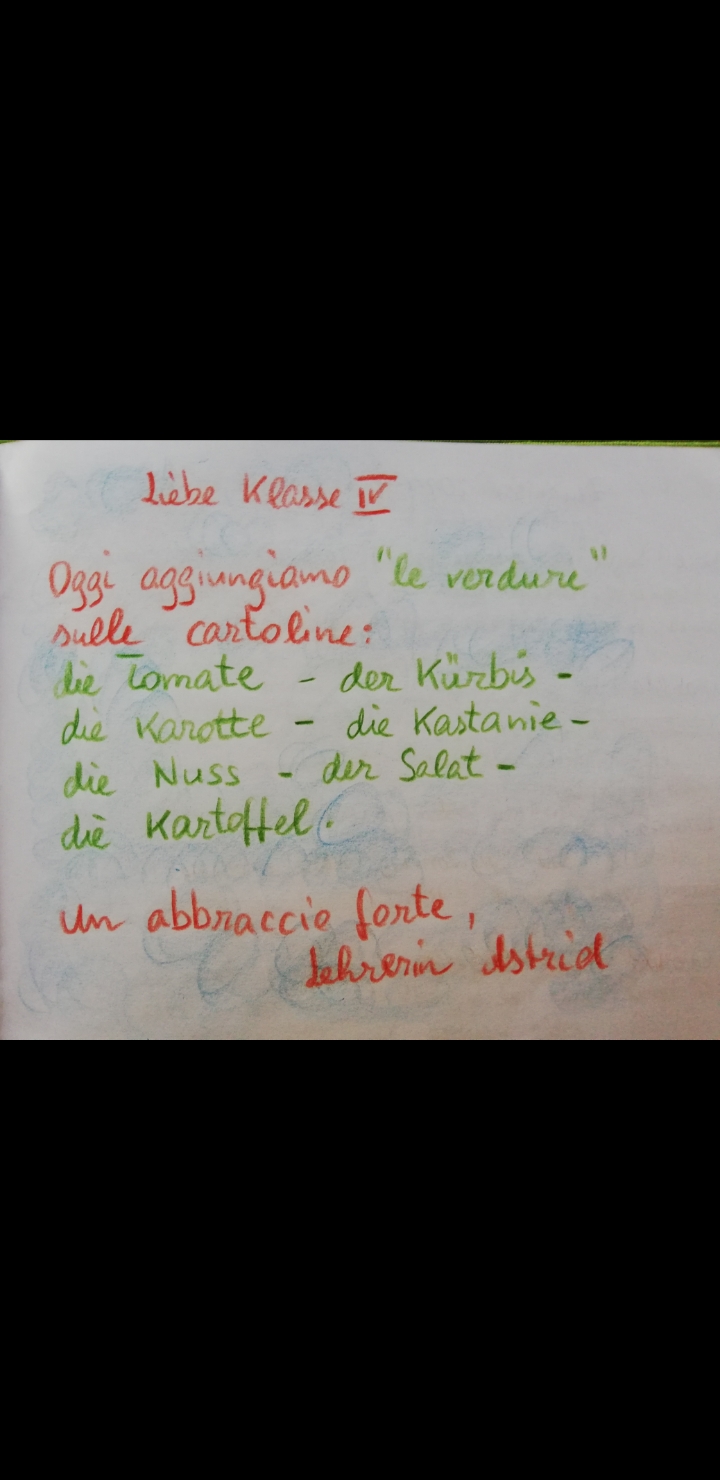 Liebe Klasse IV
Oggi aggiungiamo "le verdure"
sulle cartoline:
die Tomate - der Kürbis -
die Karotte - die Kastanie -
die Nuss - der Salat -
die Kartoffel.
Un abbraccio forte,
Lehrerin Astrid